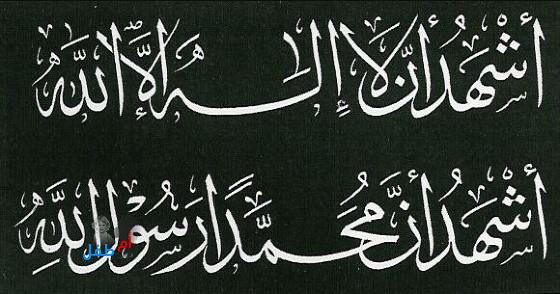 أشهد أن لا إله إلا الله
أشهد أن محمدا رسول الله
أم طفل